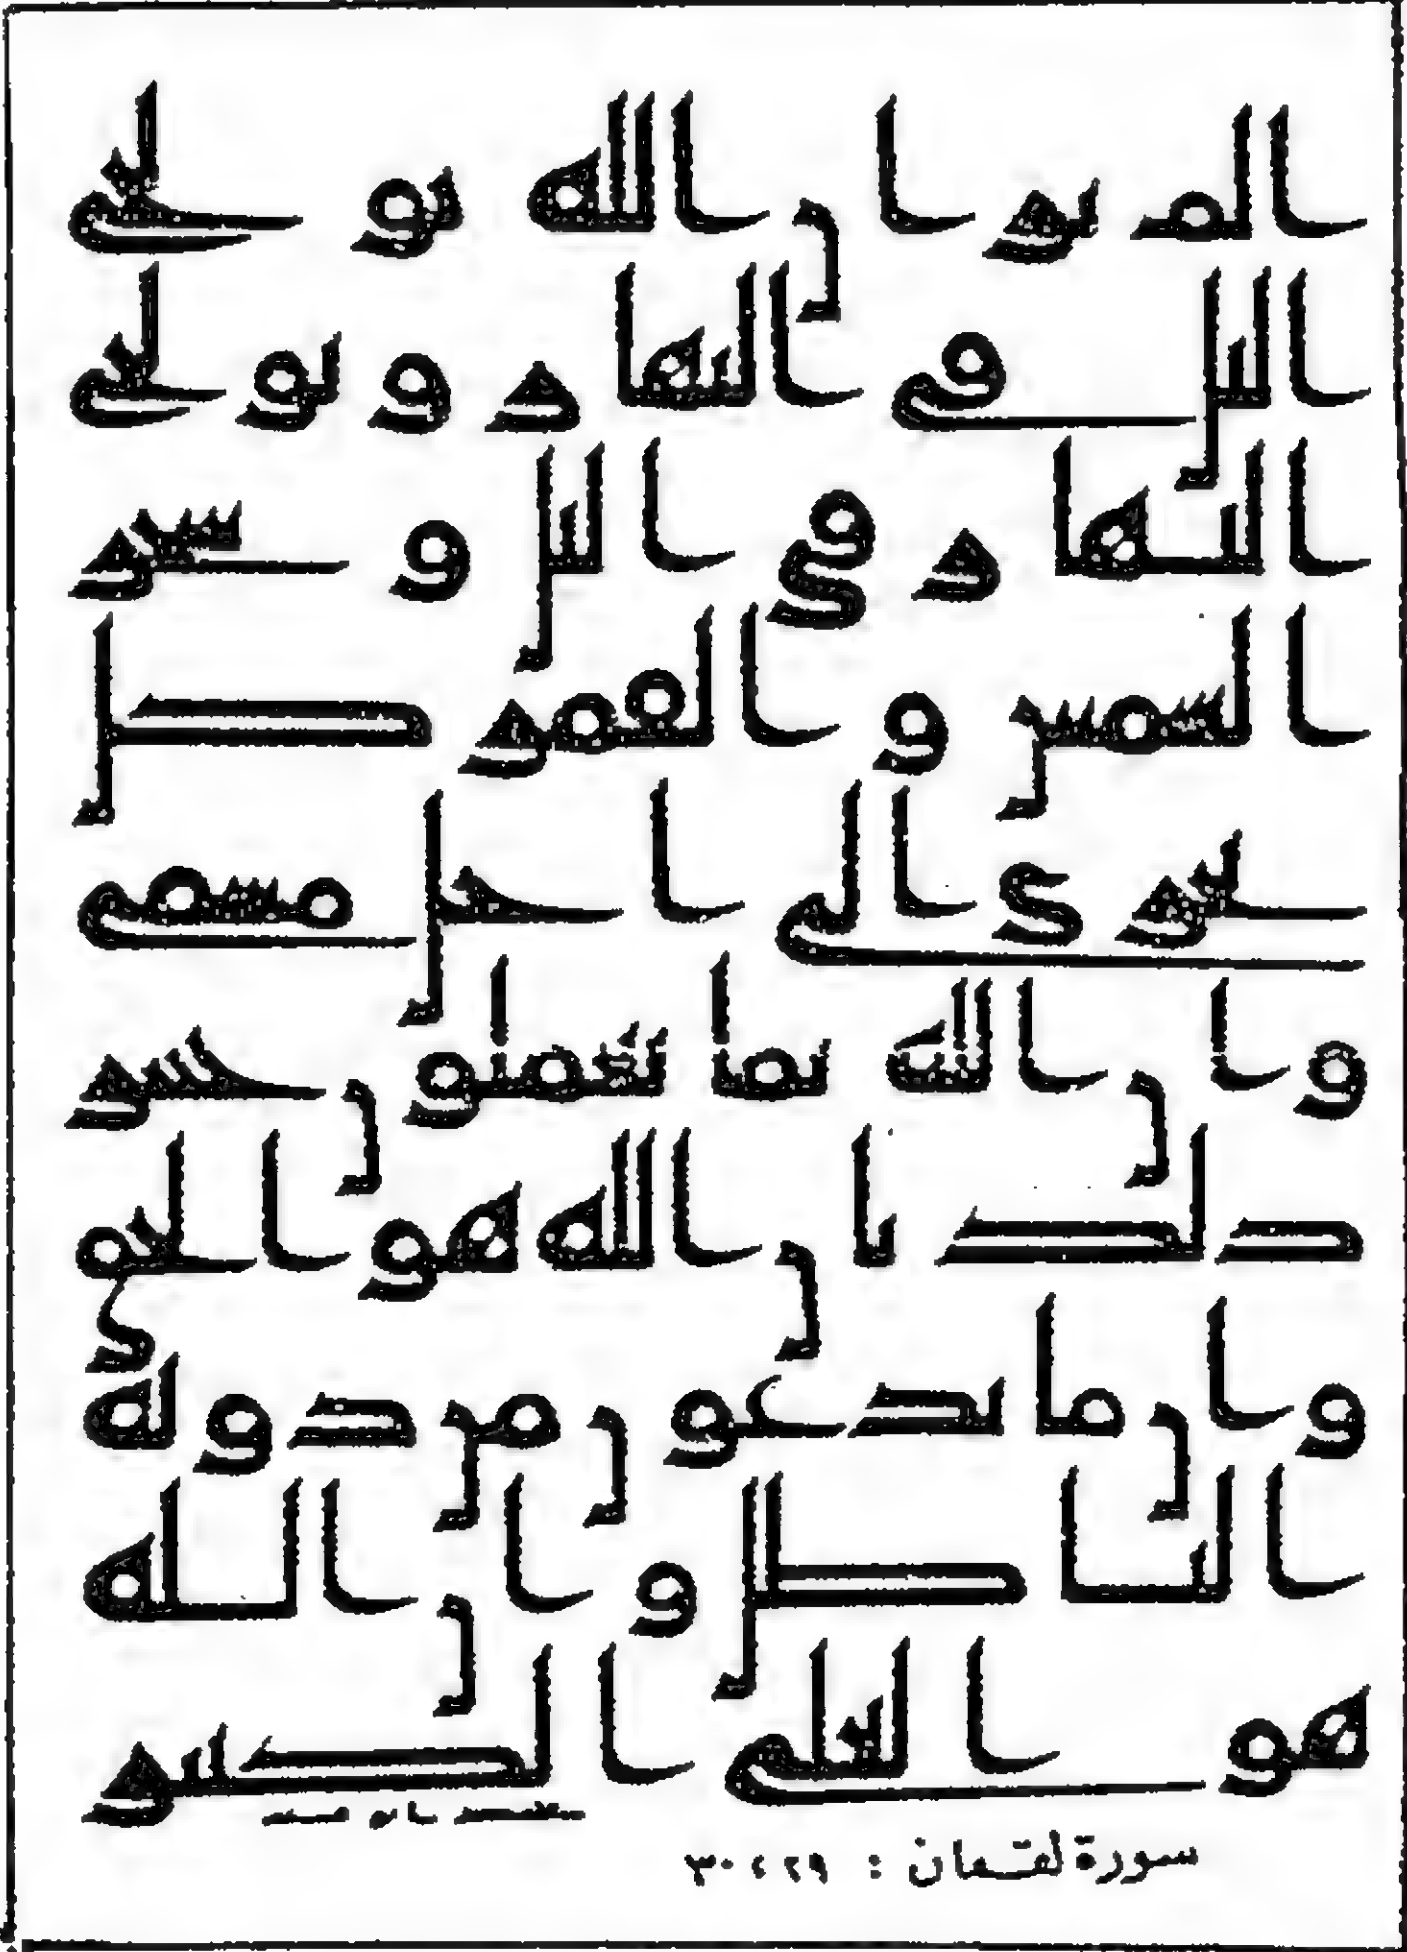 الم تر ان الله يولج
اليل في النهار ويولج
النهار في اليل وسخر
الشمس والقمر كل
يجري الى اجل مسمى
وان الله بما تعملون خبير
ذلك بان الله هو الحق
وان ما يدعون من دونه
الباطل وان الله
هو العلي الكبير
سورة لقمان : ٢٩ ، ٣٠